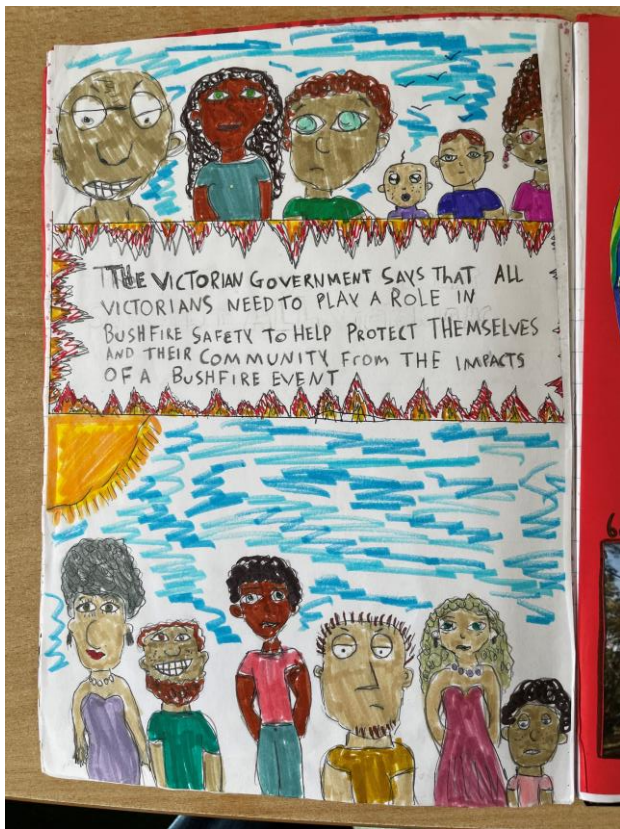 THE VICTORIAN GOVERNMENT SAYS THAT ALL
VICTORIANS NEED TO PLAY A ROLE IN
BUSHFIRE SAFETY TO HELP PROTECT THEMSELVES
AND THEIR COMMUNITY FROM THE IMPACTS
OF A BUSHFIRE EVENT